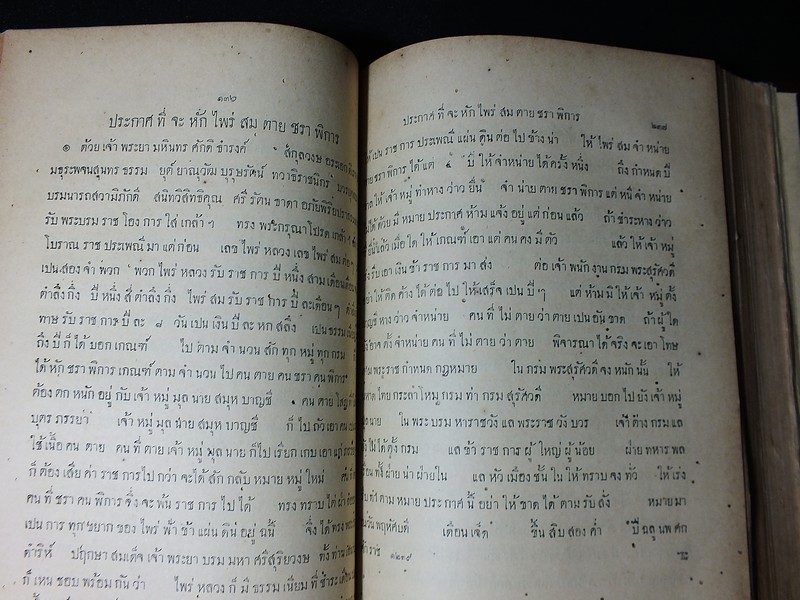 ๑๓๖
ประกาศ ที่ จะ หัก ไพร่ สม ตาย ชรา พิการ
๑ ด้วย เจ้า พระยา มหินทร ศักดิ ธำรงค์ สกุลวงษ
มธุระพจนสุนทร ธรรม ยุติ ยาณุวัฒ บุรุษรัตน์ ทวาธิราชนิกร
บรมนารถสวามิภักดี สนิทวิสิทธิคุณ ศรี รัตน ธาดา อภัยพิริย
รับ พระบรม ราช โองการ ใส่ เกล้า ฯ ทรง พระกรุณาโปรด เกล้า ฯ
โบราณ ราช ประเพณี มา แต่ ก่อน เลข ไพร่ หลวง เลข ไพร่ สม
เปนสอง จำ พวก พวก ไพร่ หลวง รับ ราช การ ปี หนึ่ง สาม เดือน
ตำลึง กึ่ง ปี หนึ่ง สี่ ตำลึง กึ่ง ไพร่ สม รับ ราช การ ปี ละ เดือน ๆ
ทาษ รับ ราช การ ปี ละ ๘ วัน เปน เงิน ปี ละ หก สลึง เปน ธรรม
ถึง ปี ก็ ได้ บอก เกณฑ์ ไป ตาม จำ นวน สัก ทุก หมู่ ทุก กรม
ได้ หัก ชรา พิการ เกณฑ์ ตาม จำ นวน ไป คน ตาย คน ชรา คน พิการ
ต้อง ตก หนัก อยู่ กับ เจ้า หมู่ มูล นาย สมุห บาญชี คน ตาย
บุตร ภรรยา เจ้า หมู่ มูล นาย สมุห บาญชี ก็ ไป
ใช้ เนื้อ คน ตาย คน ที่ ตาย เจ้า หมู่ มูล นาย ก็ ไป เรียก เกบ เอา แก่
ก็ ต้อง เสีย ค่า ราช การ ไป กว่า จะ ได้ สัก กลับ หมาย หมู่ ใหม่
คน ที่ ชรา คน พิการ ซึ่ง จะ พ้น ราช การ ไป ได้ ทรง ทราบ ใต้ ฝ่า
เปน การ ทุกขยาก ของ ไพร่ ฟ้า ข้า แผ่น ดิน อยู่ ฉนี้ จึ่ง ได้ ทรง
ดำริห์ ปฤกษา สมเด็จ เจ้า พระยา บรม มหา ศรีสุริยวงษ ทั้ง ท่าน
ก็ เหน ชอบ พร้อม กัน ว่า ไพร่ หลวง ก็ มี ธรรม เนียม ที่ ชำระ
ประกาศ ที่ จะ หัก ไพร่ สม ตาย ชรา พิการ
๒๓๗
เปน ราช การ ประเพณี แผ่น ดิน ต่อ ไป ข้าง น่า ให้ ไพร่ สม จำ หน่าย
ชรา พิการ ได้ แต่ ๕ ปี ให้ จำหน่าย ได้ ครั้ง หนึ่ง ถึง กำหนด ปี
ให้ เจ้า หมู่ ทำ หาง ว่าว ยื่น จำ น่าย ตาย ชรา พิการ แต่ หนี จำ หน่าย
ได้ ด้วย มี หมาย ประกาศ ห้าม แจ้ง อยู่ แต่ ก่อน แล้ว ถ้า ชำระ หาง ว่าว
แล้ว เมื่อ ใด ให้ เกณฑ์ เอา แต่ คน คง มี ตัว แล้ว ให้ เจ้า หมู่
รีบ เอา เงิน ข้า ราช การ มา ส่ง ต่อ เจ้า พนักงาน กรม พระสุรัศวดี
ให้ ติด ค้าง ได้ ต่อ ไป ให้ เสร็จ เปน ปี ๆ แต่ ห้าม มิ ให้ เจ้า หมู่ ตั้ง
หาง ว่าว จำหน่าย คน ที่ ไม่ ตาย ว่า ตาย เปน อัน ขาด ถ้า ผู้ ใด
อาจ ตั้ง จำหน่าย คน ที่ ไม่ ตาย ว่า ตาย พิจารณา ได้ จริง จะ เอา โทษ
พระราช กำหนด กฎหมาย ใน กรม พระสุรัศวดี จง หนัก นั้น ให้
ไทย กระลาโหม กรม ท่า กรม สุรัศวดี หมาย บอก ไป ยัง เจ้า หมู่
นาย ใน พระ บรม มหาราชวัง แล พระราช วัง บวร เจ้า ต่าง กรม แล
ไม่ ได้ ตั้ง กรม แล ข้า ราช การ ผู้ ใหญ่ ผู้ น้อย ฝ่าย ทหาร พล
ทั้ง ฝ่าย น่า ฝ่าย ใน แล หัว เมือง ขึ้น ใน ให้ ทราบ จง ทั่ว ให้ เร่ง
ทำ ตาม หมาย ประกาศ นี้ อย่า ให้ ขาด ได้ ตาม รับ สั่ง หมาย มา
วัน พฤหัศบดี เดือน เจ็ด ขึ้น สิบ สอง ค่ำ ปี ฉลู นพ ศก
๑๒๓๙